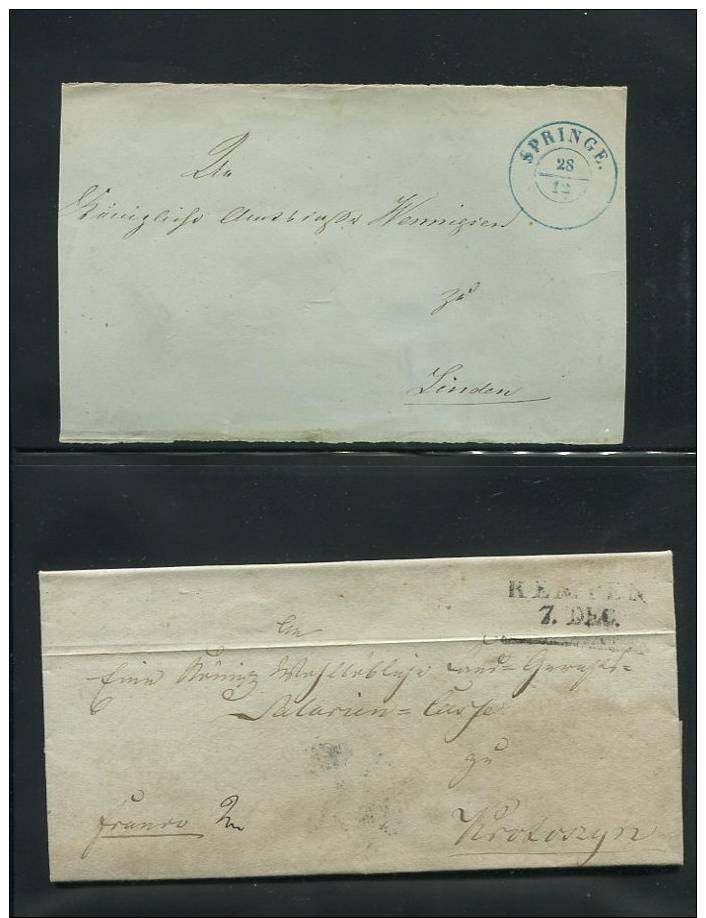 SPRINGE.
28
12
An
Königliche Wennigsen
zu
Linden
KEMPEN
7. DEC.
An
Eine Königl Wohllöbliche Land=Gerichts=
Salarien=Casse
zu
franco
Krotoszyn